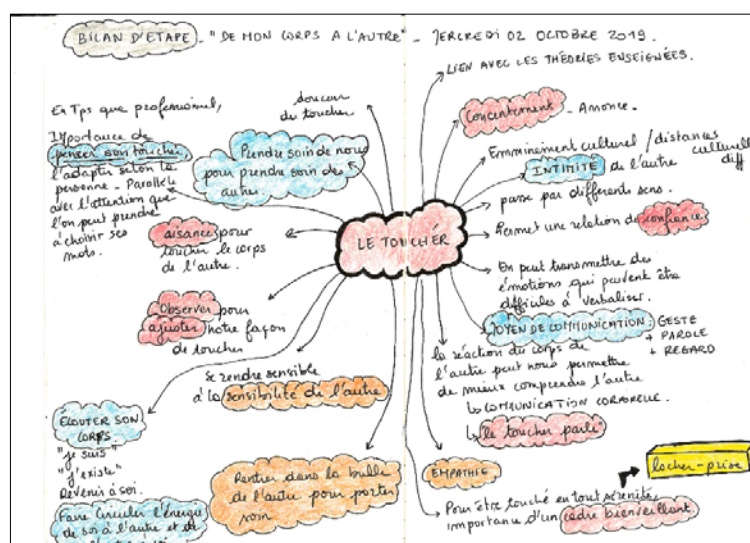 BILAN D'ETAPE - "DE MON CORPS A L'AUTRE" - MERCREDI 02 OCTOBRE 2019.
En Tps que professionnel,
Importance de
penser son toucher,
l'adapter selon la
personne - Parallèle
avec l'attention que
l'on peut prendre
à choisir ses
mots.
douceur
du toucher
Prendre soin de nous
pour prendre soin des
autres.
aisance pour
toucher le corps
de l'autre.
Observer pour
ajuster notre façon
de toucher
Se rendre sensible
à la sensibilité de l'autre
ÉCOUTER SON
CORPS
"je suis"
"j'existe"
Revenir à soi.
Faire circuler l'énergie
de soi à l'autre et de
Rentrer dans la bulle
de l'autre pour porter
soin
LE TOUCHÉR
LIEN AVEC LES THÉORIES ENSEIGNÉES.
Consentement - Annonce.
Emminement culturel / distances
culturelle
diff
INTIMITÉ de l'autre
passe par différents sens.
Permet une relation de confiance
On peut transmettre des
émotions qui peuvent être
difficiles à verbaliser.
MOYEN DE COMMUNICATION : GESTE
+ PAROLE
+ REGARD
la réaction du corps de
l'autre peut nous permettre
de mieux comprendre l'autre
↳ COMMUNICATION CORPORELLE.
↳ "le toucher parle"
EMPATHIE
locher-prise
Pour être touché en tout sérénité,
importance d'un cadre bienveillant.